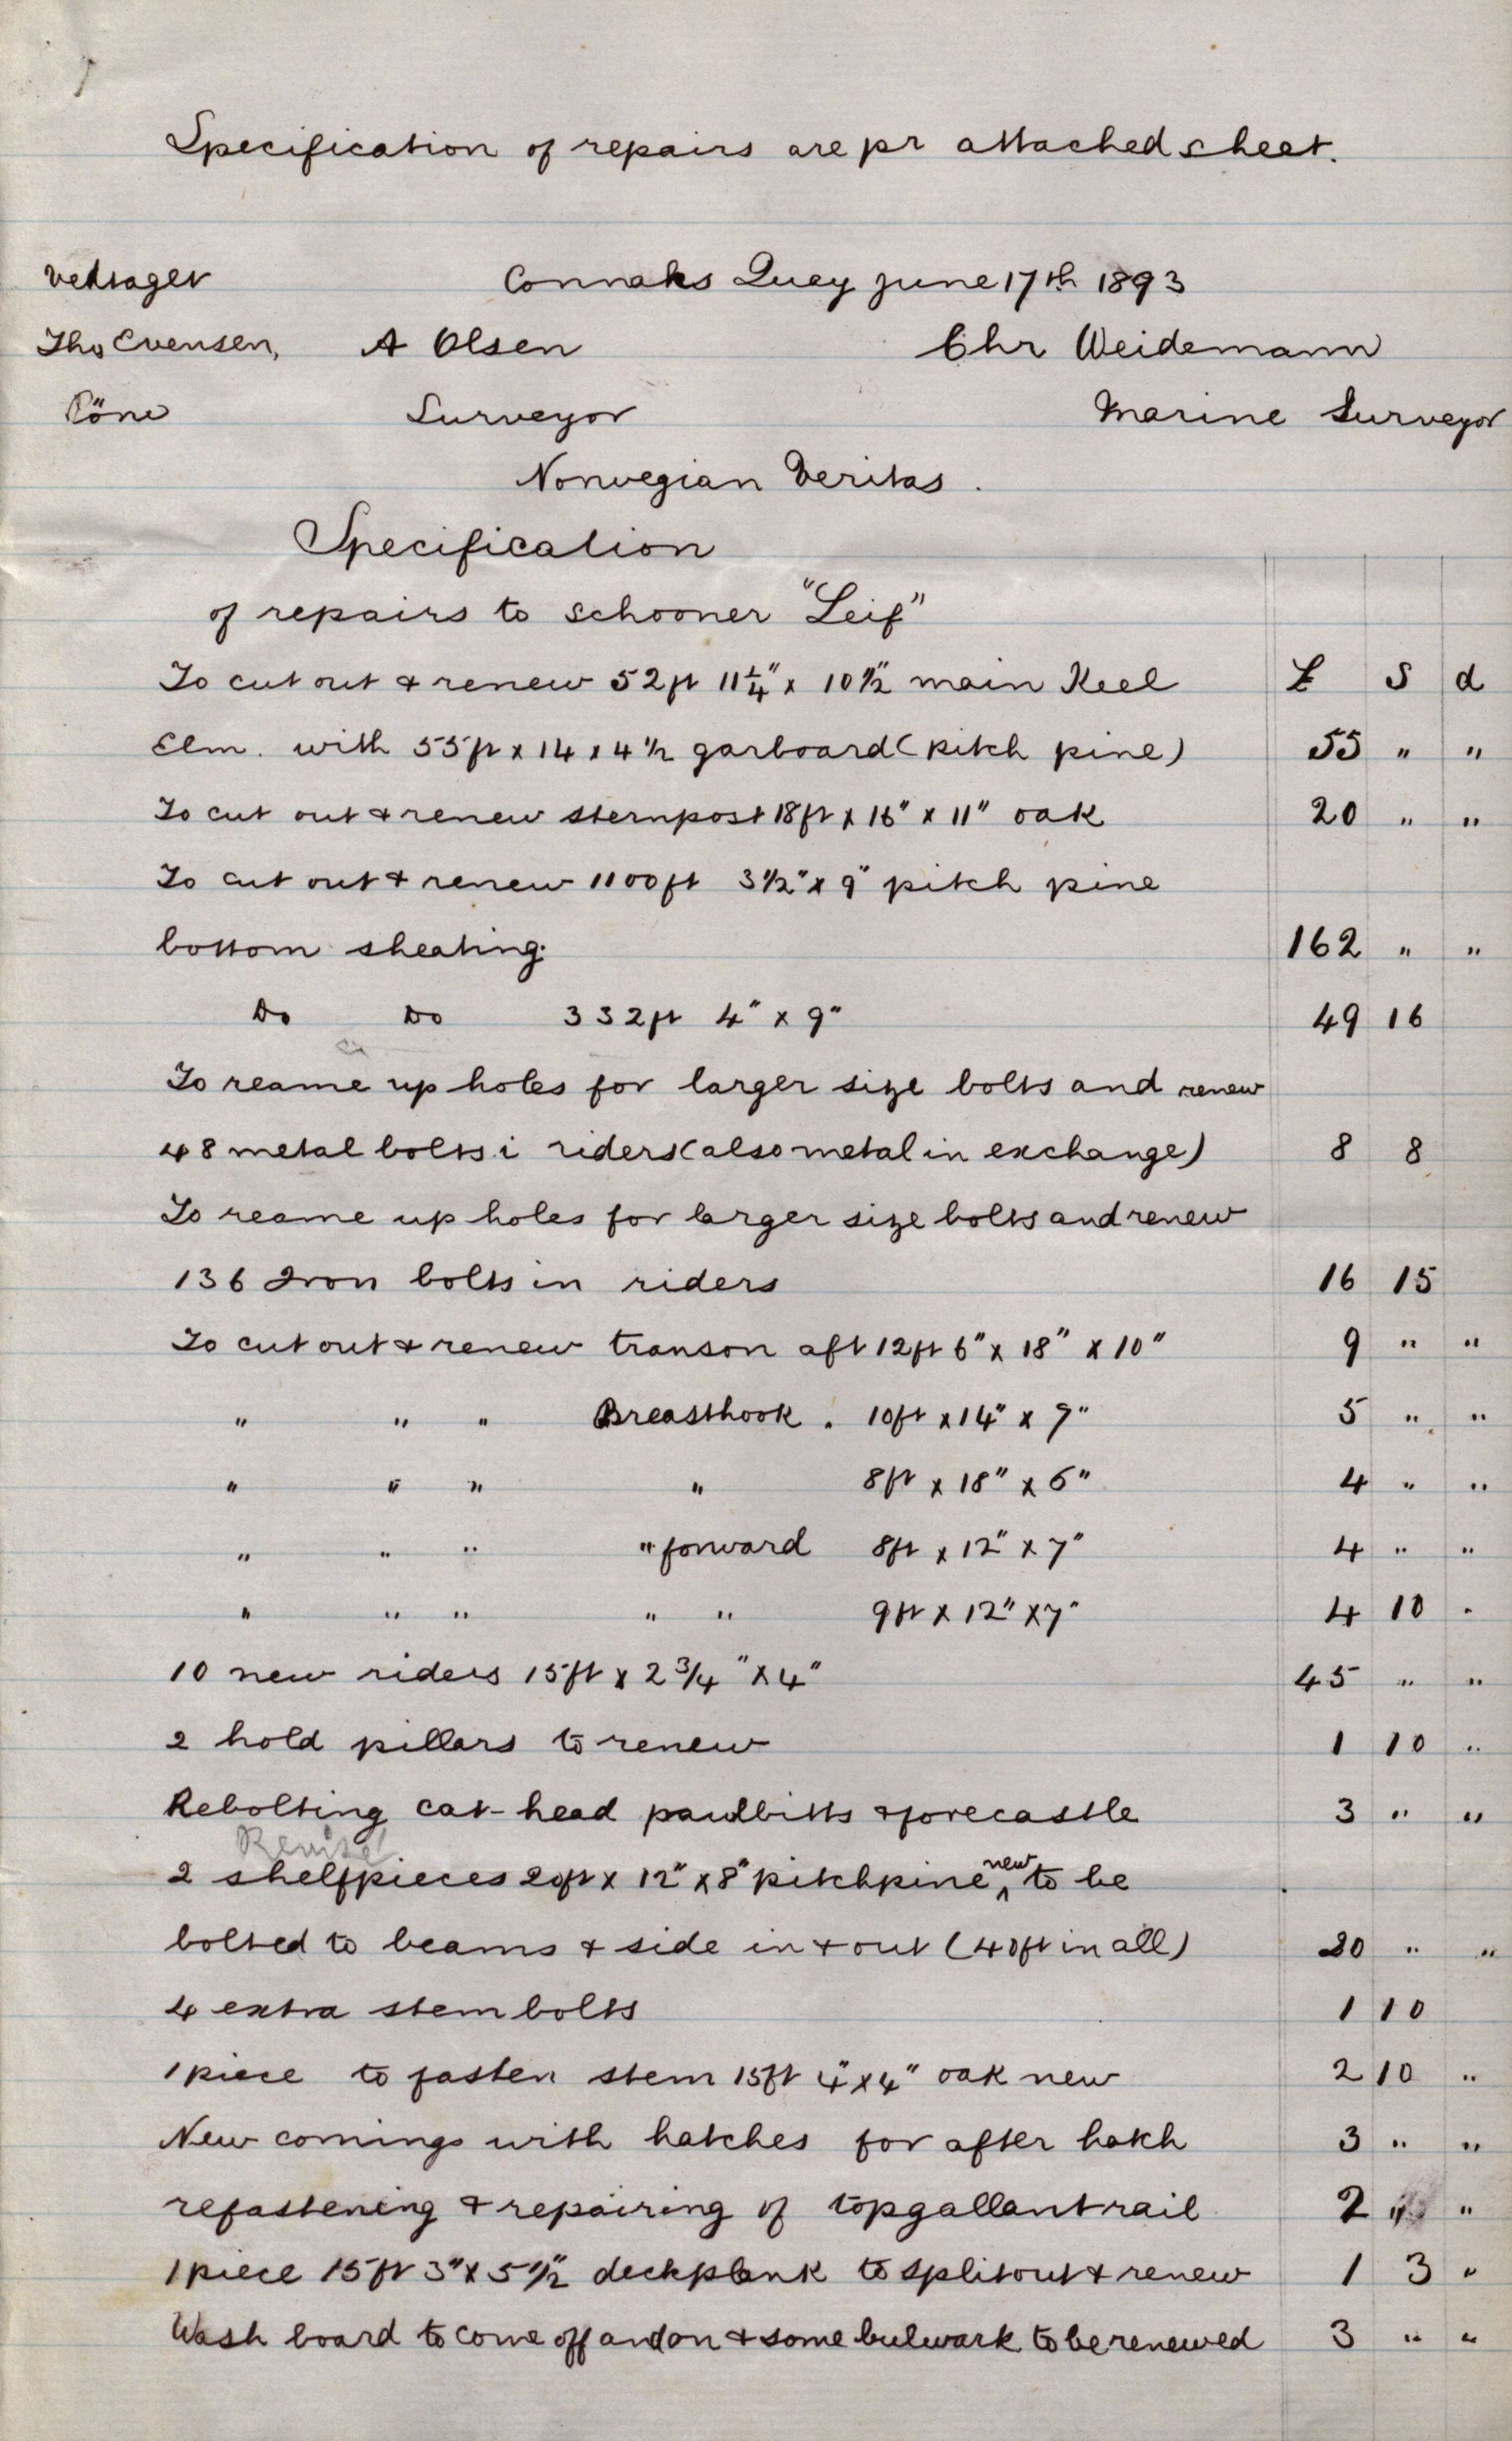 Specification of repairs are pr attached sheet.
Vedtaget Connahs Quey June 17th 1893
Tho Evensen, A Olsen Chr Weidemann
Surveyor Marine Surveyor
Norwegian Veritas.
Specification
of repairs to schooner "Leif"
To cut out & renew 52ft 11¼" x 10½" main Keel £ S d
Elm. with 55ft x 14 x 4½ garboard (pitch pine) 55 " "
To cut out & renew sternpost 18ft x 16" x 11" oak 20 " "
To cut out & renew 1100ft 3½" x 9" pitch pine
bottom sheating. 162 " "
Do Do 332ft 4" x 9" 49 16
To reame up holes for larger size bolts and renew
48 metal bolts i riders (also metal in exchange) 8 8
To reame up holes for larger size bolts and renew
136 Iron bolts in riders 16 15
To cut out & renew transon aft 12ft 6" x 18" x 10" 9 " "
" " " Breasthook . 10ft x 14" x 9" 5 " "
" " " " 8ft x 18" x 6" 4 " "
" " " " forward 8ft x 12" x 7" 4 " "
" " " " " 9ft x 12" x 7" 4 10 "
10 new riders 15ft x 2¾" x 4" 45 " "
2 hold pillars to renew 1 10 "
Rebolting cat-head pawlbitts & forecastle 3 " "
2 shelfpieces 20ft x 12" x 8" pitchpine new to be
bolted to beams & side in & out (40ft in all) 20 " "
4 extra stem bolts 1 10
1 piece to fasten stem 15ft 4" x 4" oak new 2 10 "
New comings with hatches for after hatch 3 " "
refastening & repairing of topgallant rail 2 " "
1 piece 15ft 3" x 5½" deckplank to split out & renew 1 3 "
Wash board to come off and on & some bulwark to be renewed 3 " "